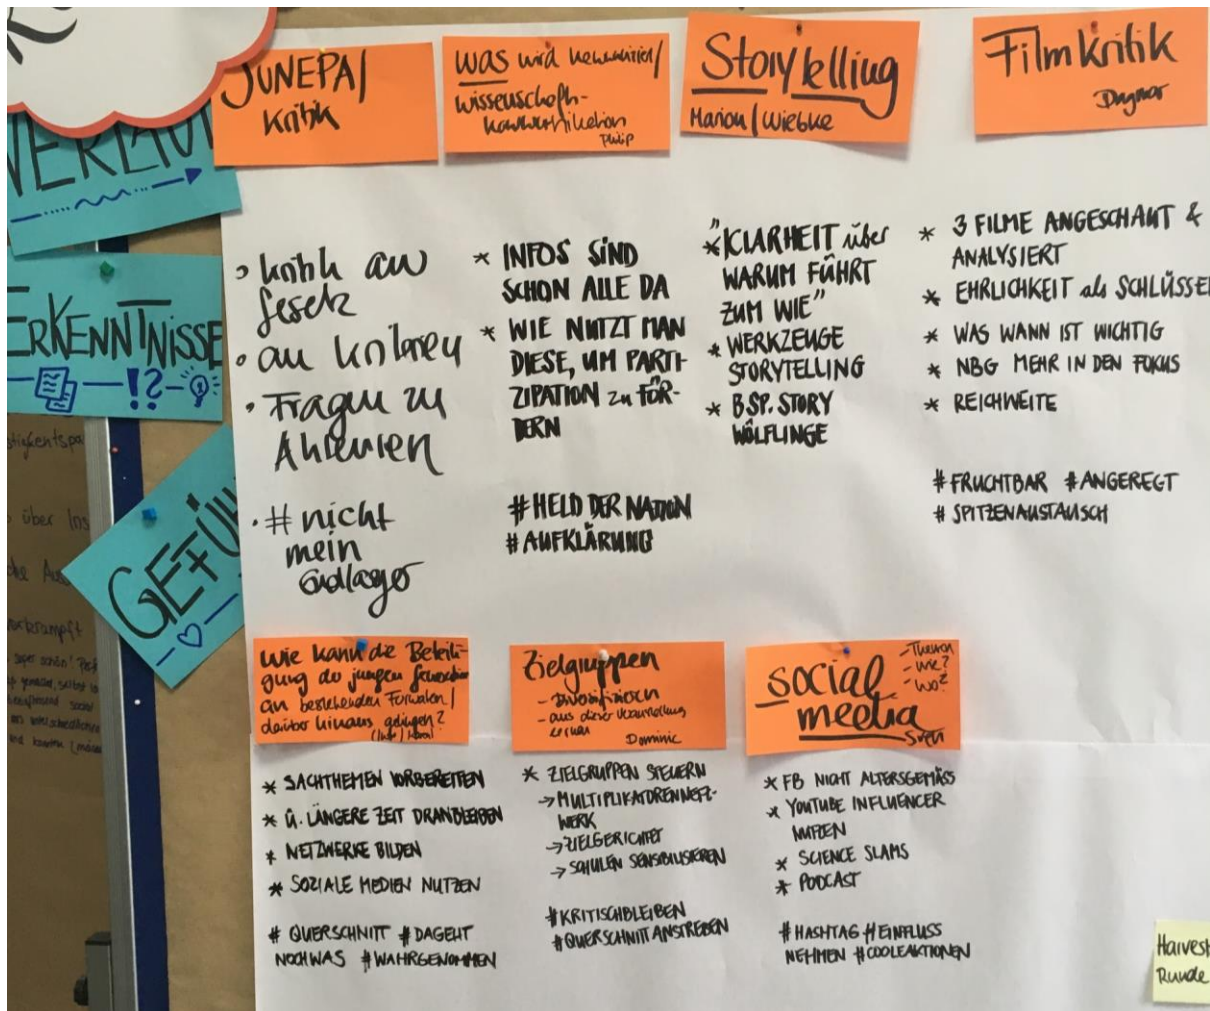 VERLAUF
ERKENNTNISSE
!?
GEFÜH
JUNEPA/
Kritik
WAS wird kommuniziert/
Wissenschafts-
kommunikation
Philip
Storytelling
Marion/Wiebke
Filmkritik
Dagmar
• Kritik am
Gesetz
• an
• Fragen zu
• # nicht
mein
Endlager
* INFOS SIND
SCHON ALLE DA
* WIE NUTZT MAN
DIESE, UM PARTI-
ZIPATION zu FÖR-
DERN
# HELD DER NATION
# AUFKLÄRUNG
* "KLARHEIT über
WARUM FÜHRT
ZUM WIE"
* WERKZEUGE
STORYTELLING
* BSP. STORY
WÖLFLINGE
* 3 FILME ANGESCHAUT &
ANALYSIERT
* EHRLICHKEIT als SCHLÜSSEL
* WAS WANN IST WICHTIG
* NBG MEHR IN DEN FOKUS
* REICHWEITE
# FRUCHTBAR # ANGEREGT
# SPITZENAUSTAUSCH
Wie kann die Beteili-
gung der jungen Generation
an bestehenden Formaten/
darüber hinaus gelingen?
* SACHTHEMEN VORBEREITEN
* Ü. LÄNGERE ZEIT DRANBLEIBEN
* NETZWERKE BILDEN
* SOZIALE MEDIEN NUTZEN
# QUERSCHNITT # DAGEHT
NOCHWAS # WAHRGENOMMEN
Zielgruppen
- Diversifizieren
- aus dieser Veranstaltung
lernen
Dominic
* ZIELGRUPPEN STEUERN
→ MULTIPLIKATORENNETZ-
WERK
→ ZIELGERICHTET
→ SCHULEN SENSIBILISIEREN
# KRITISCHBLEIBEN
# QUERSCHNITT ANSTREBEN
social
media
- Themen
- Wie?
- Wo?
Sven
* FB NICHT ALTERSGEMÄSS
* YOUTUBE INFLUENCER
NUTZEN
* SCIENCE SLAMS
* PODCAST
# HASHTAG # EINFLUSS
NEHMEN # COOLEAKTIONEN
Harvest
Runde